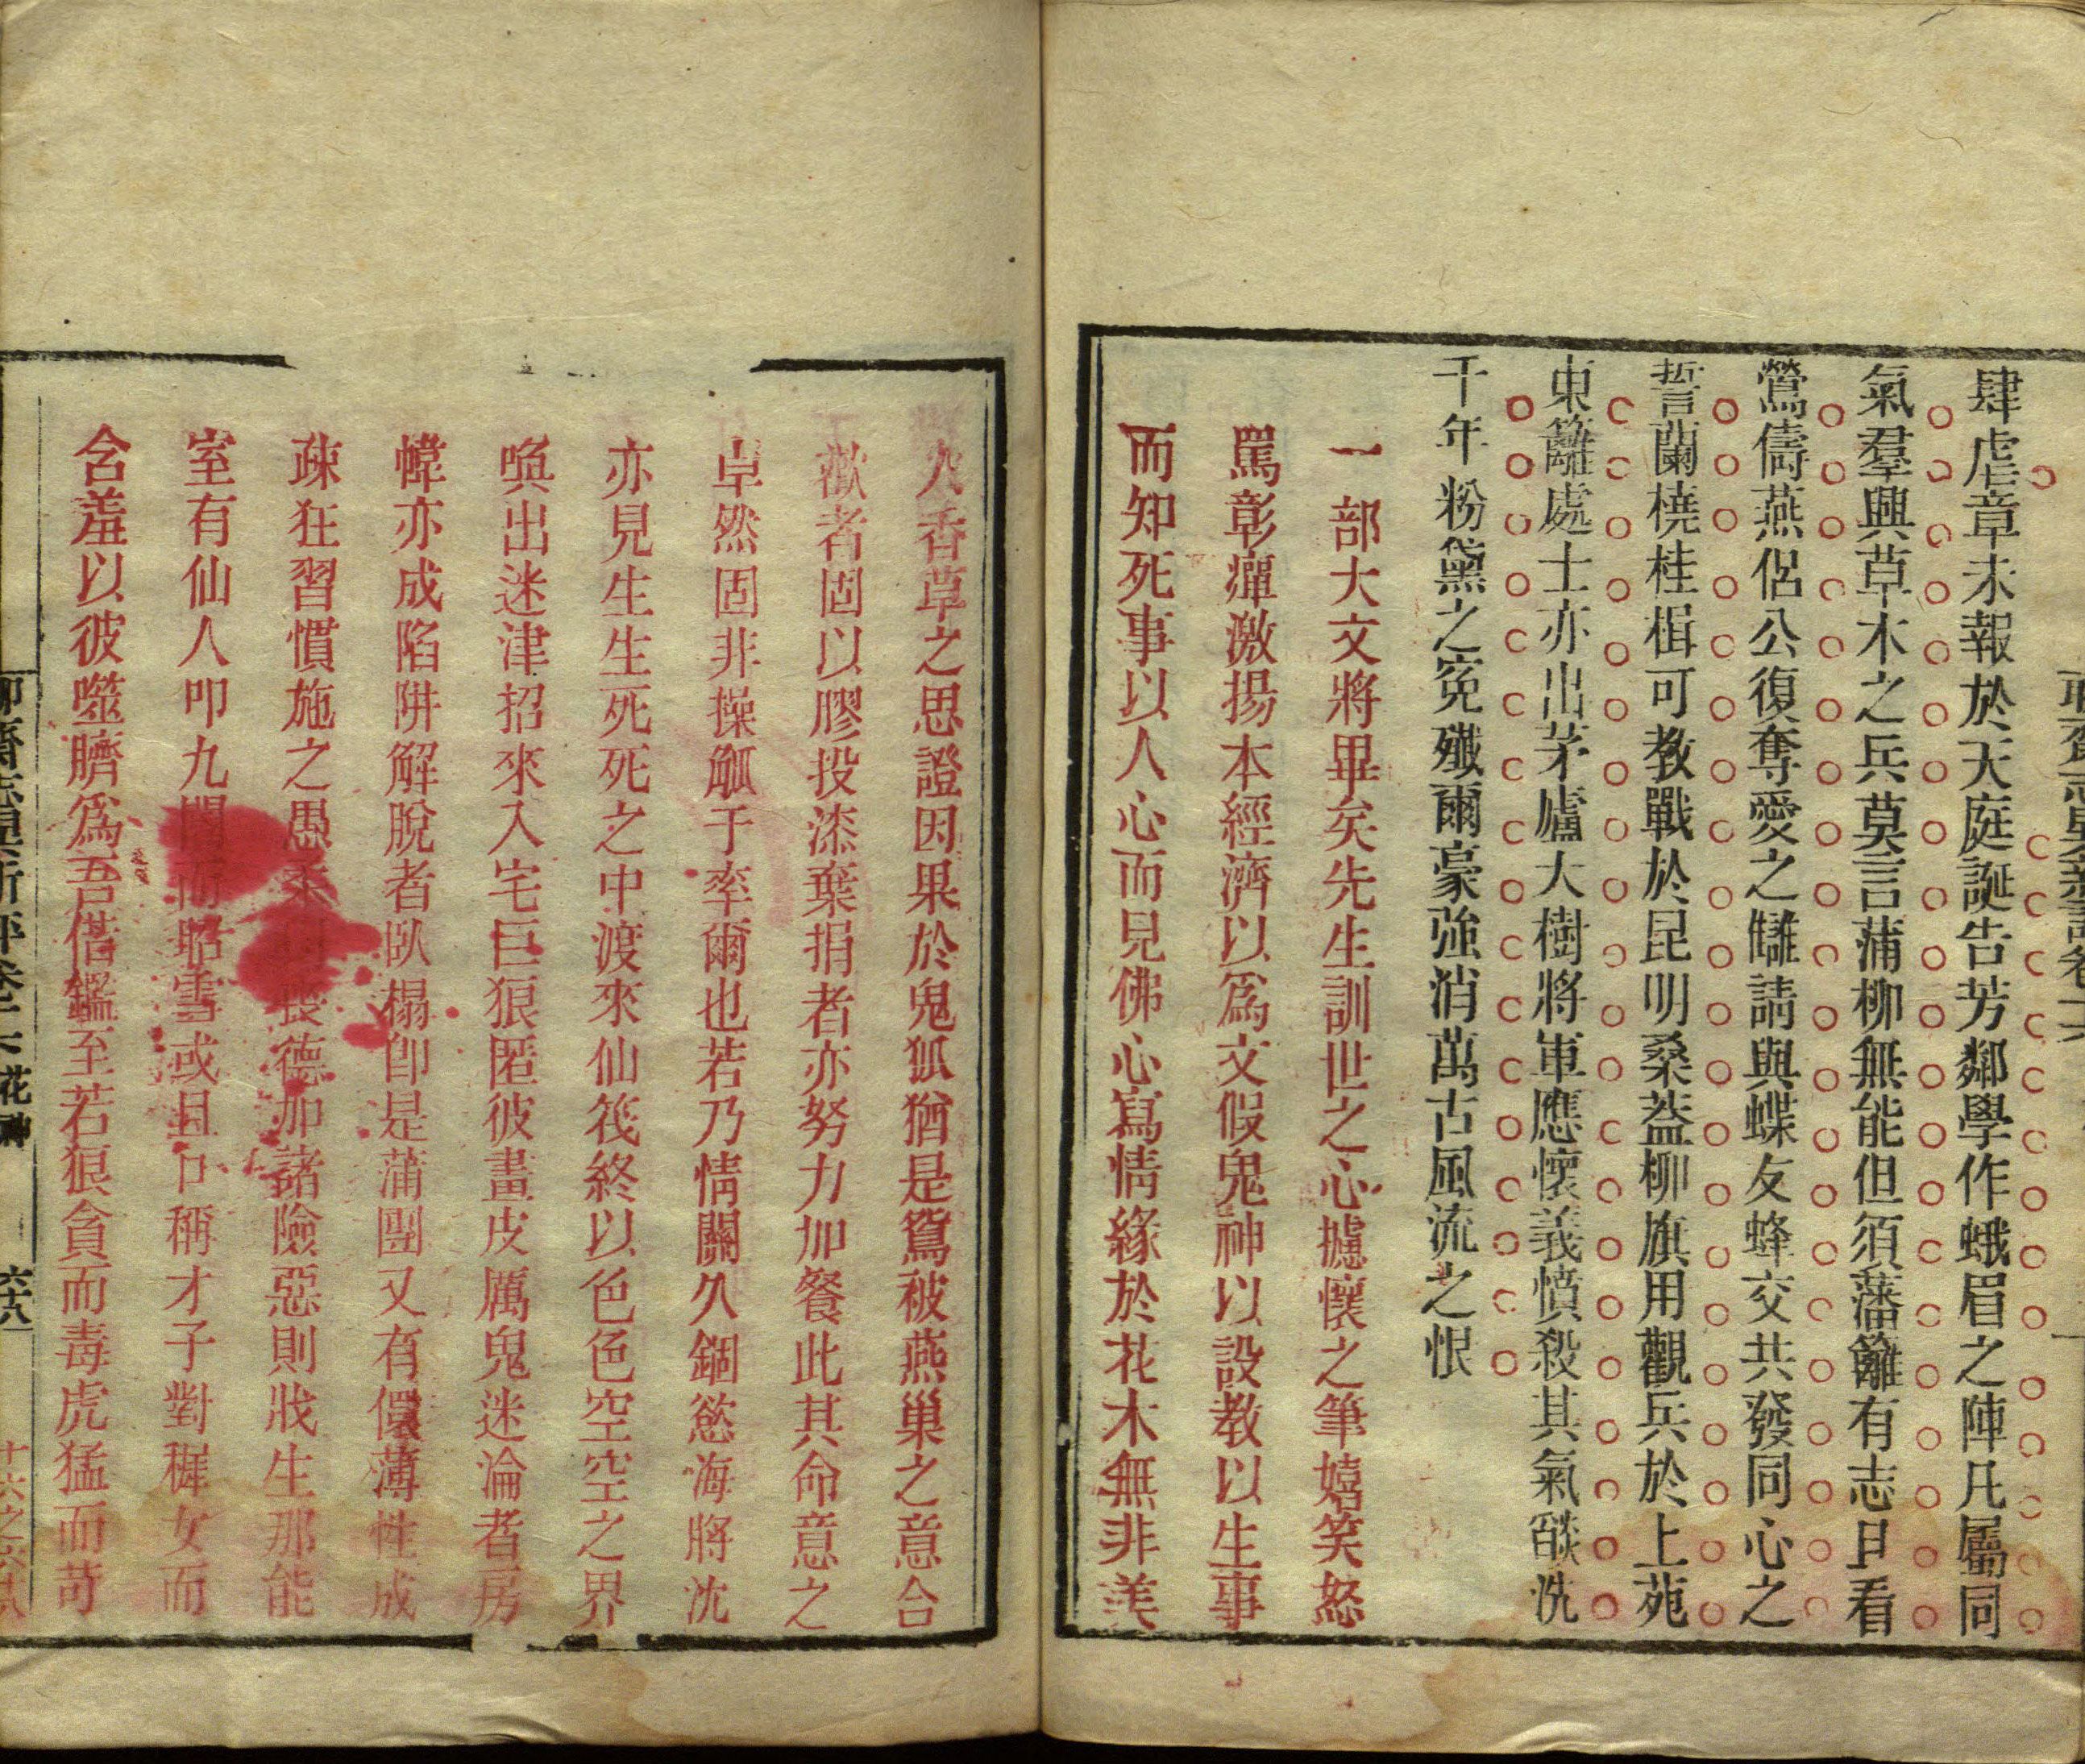 肆虐章未報於天庭誕告芳鄰學作蛾眉之陣凡屬同
氣羣興草木之兵莫言蒲柳無能但須藩籬有志且看
鶯儔燕侶公復奪愛之讎請與蝶友蜂交共發同心之
誓蘭橈桂楫可教戰於昆明桑蓋柳旗用觀兵於上苑
東籬處士亦出茅廬大樹將軍應懷義憤殺其氣燄洗
千年粉黛之寃殲爾豪強消萬古風流之恨
一部大文將畢矣先生訓世之心攄懷之筆嬉笑怒
罵彰癉激揚本經濟以爲文假鬼神以設教以生事
而知死事以人心而見佛心寫情緣於花木無非美
人香草之思證因果於鬼狐猶是鴛被燕巢之意合
歡者固以膠投漆棄捐者亦努力加餐此其命意之
卓然固非操觚于率爾也若乃情關久錮慾海將沈
亦見生生死死之中渡來仙筏終以色色空空之界
喚出迷津招來入宅巨狼匿彼畫皮厲鬼迷淪者房
幃亦成陷阱解脫者臥榻卽是蒲團又有儇薄性成
疎狂習慣施之愚柔喪德加諸險惡則戕生那能
室有仙人叩九閽而昭雪或且口稱才子對穉女而
含羞以彼噬臍爲吾借鑑至若狼貪而毒虎猛而苛
聊齋志異新評卷十六 花神 六十八